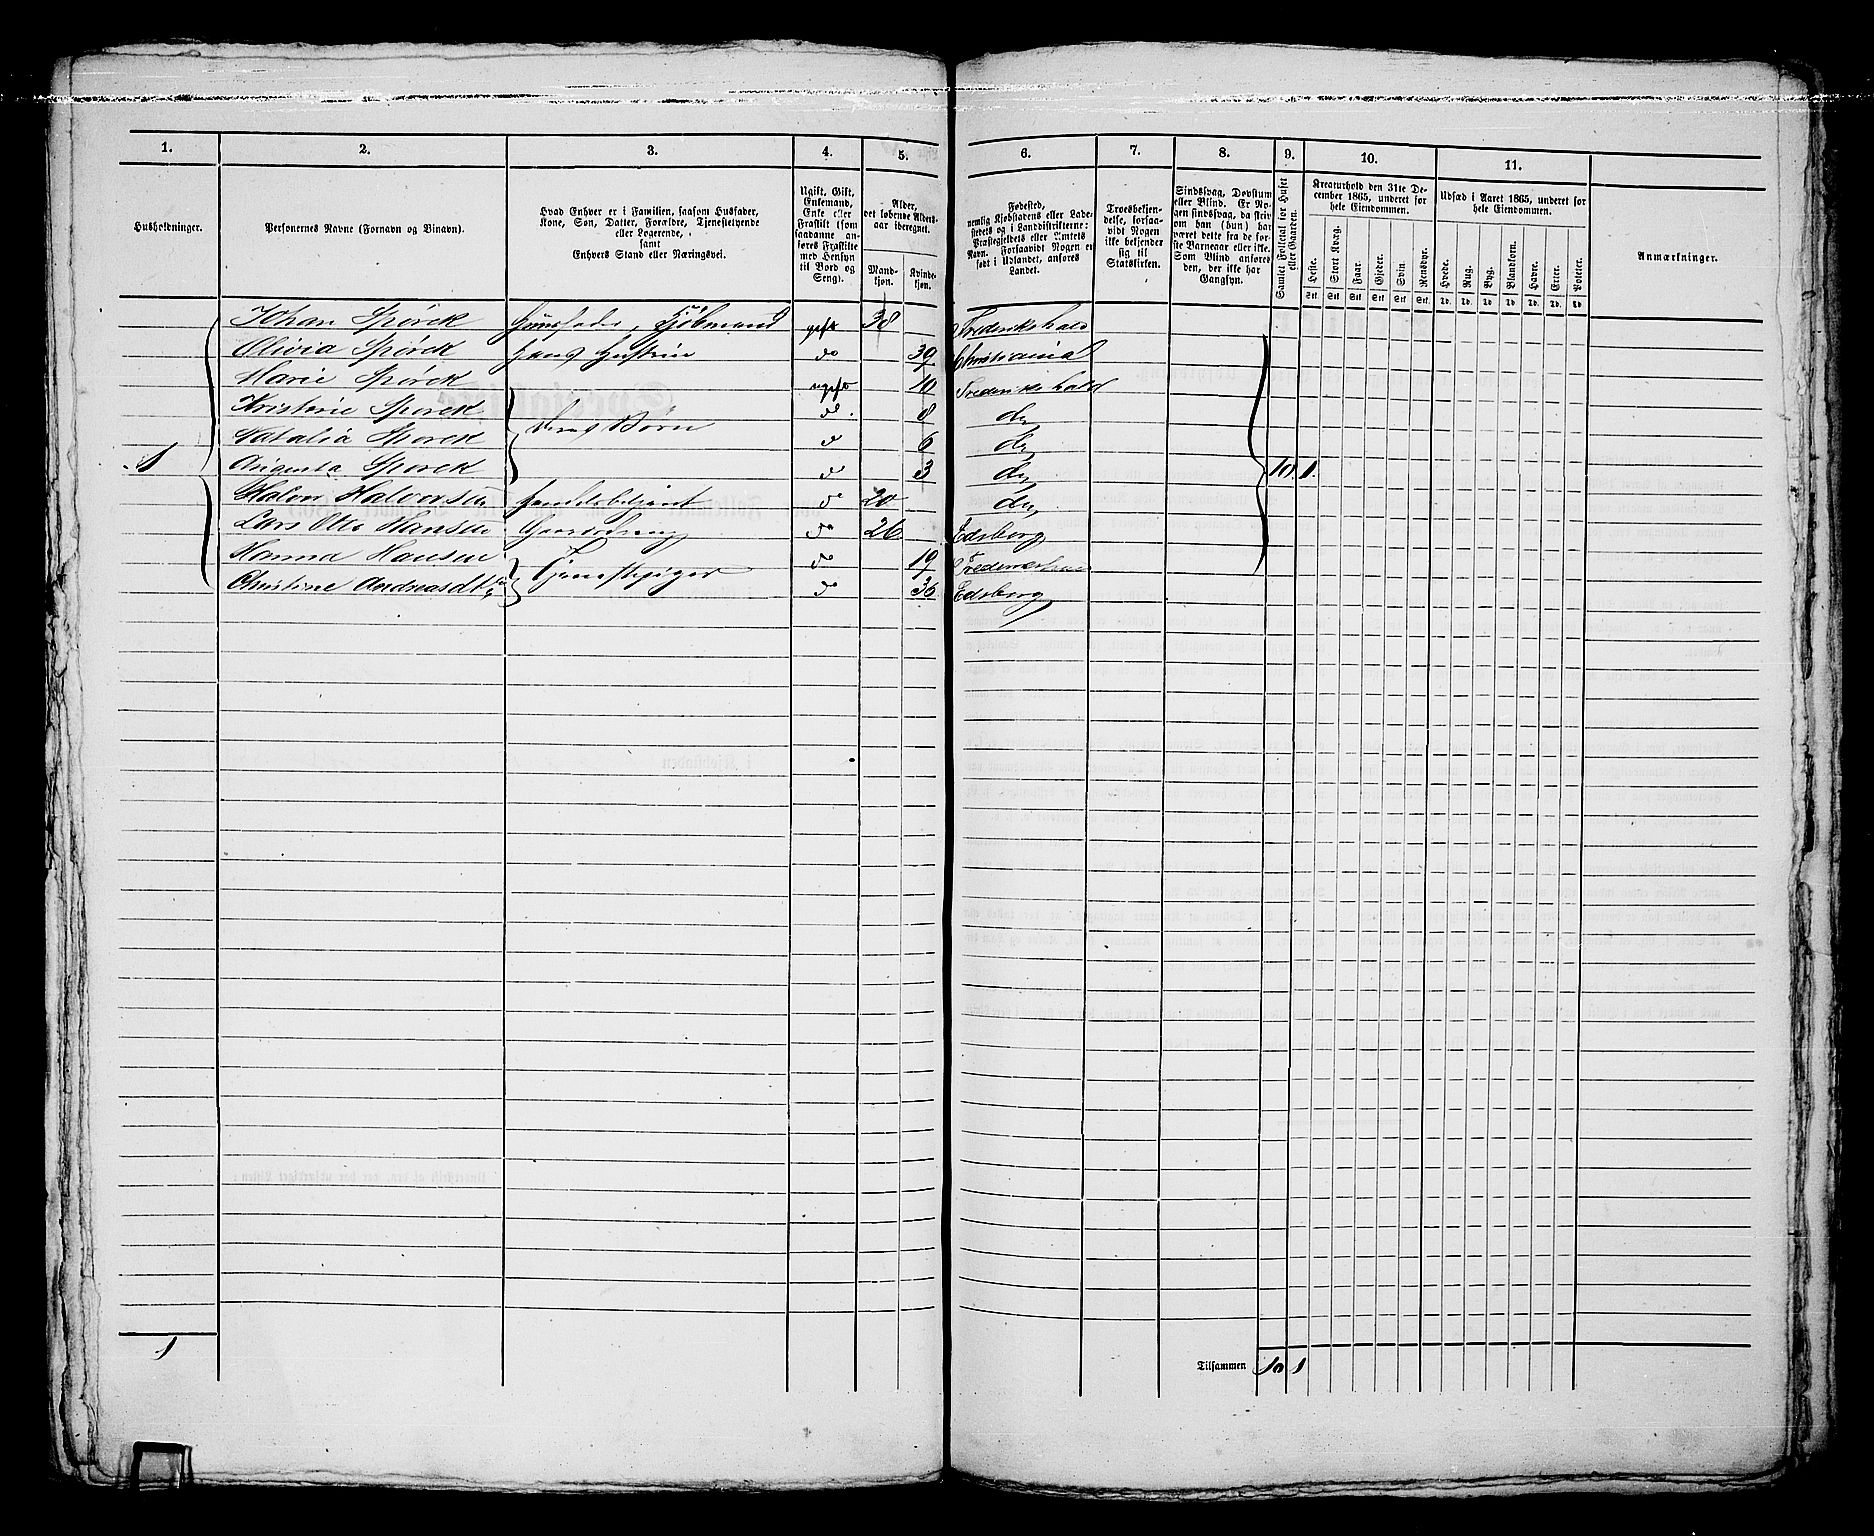 1. 2. 3. 4. 5. 6. 7. 8. 9. 10. 11.
Husholdninger.
Personernes Navne (Fornavn og Binavn).
Hvad Enhver er i Familien, saasom Husfader,
Kone, Søn, Datter, Forældre, Tjenestetyende
eller Logerende,
samt
Enhvers Stand eller Næringsvei.
Ugift, Gift,
Enkemand,
Enke eller
Fraskilt (som
saadanne an-
føres Fraskilte
med Hensyn
til Bord og
Seng).
Alder,
det løbende Alders-
aar iberegnet.
Mand-
kjøn.
Kvinde-
kjøn.
Fødested,
nemlig Kjøbstadens eller Lade-
stedets og i Landdistrikterne:
Præstegjeldets eller Amtets
Navn. Forsaavidt Nogen er
født i Udlandet, anføres
Landet.
Troesbekjen-
delse, forsaa-
vidt Nogen
ikke bekjender
sig til
Statskirken.
Sindssvag, Døvstum
eller Blind. Er No-
gen sindssvag, da skriv
om han (hun) har
været dette fra de før-
ste Barneaar eller ikke.
Som Blind anføres
den, der ikke har
Gangsyn.
Samlet Folketal for Huset
eller Gaarden.
Kreaturhold den 31te De-
cember 1865, underet for
hele Eiendommen.
Heste. Stort Kvæg. Faar. Gjeder. Svin. Rensdyr.
Stk. Stk. Stk. Stk. Stk. Stk.
Udsæd i Aaret 1865, underet for
hele Eiendommen.
Hvede. Rug. Byg. Blandkorn. Havre. Erter. Poteter.
Td. Td. Td. Td. Td. Td. Td.
Anmærkninger.
Johan Spørck Huusfader, Kjøbmand gift 38 Frederikshald
Olivia Spørck hans Hustru do 39 Christiania
Marie Spørck ugift 10 Frederikshald
Kristine Spørck do 8 do
Natalia Spørck deres Børn do 6 do
1 Augusta Spørck do 3 do 10 1
Halvor Halvorsen Handelsbetjent do 20 do
Lars Otto Hansen Gaardsdreng do 26 Edsberg
Hanna Hansen do 19
Christine Andreasdtr Tjenestepiger do 36 Edsberg
1
Tilsammen 10 1